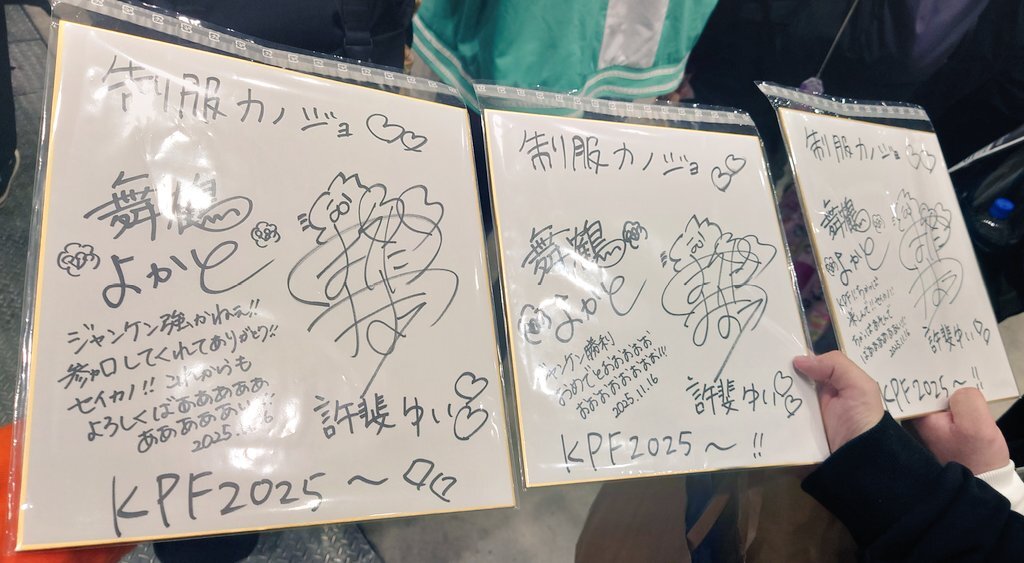 制服カノジョ
舞鶴
よかと
ジャンケン強かねー!!
参加してくれてありがとう!!
セイカノ!! これからも
よろしくばあああああ
ああああああ!!!
2025.11.16
許斐ゆい
KPF2025～
制服カノジョ
舞鶴
よかと
ジャンケン勝利
おめでとおおおおお
おおおおおおお!!!
2025.11.16
許斐ゆい
KPF2025～!!
制服カノジョ
舞鶴
よかと
2025.11.16
許斐ゆい
KPF2025～!!